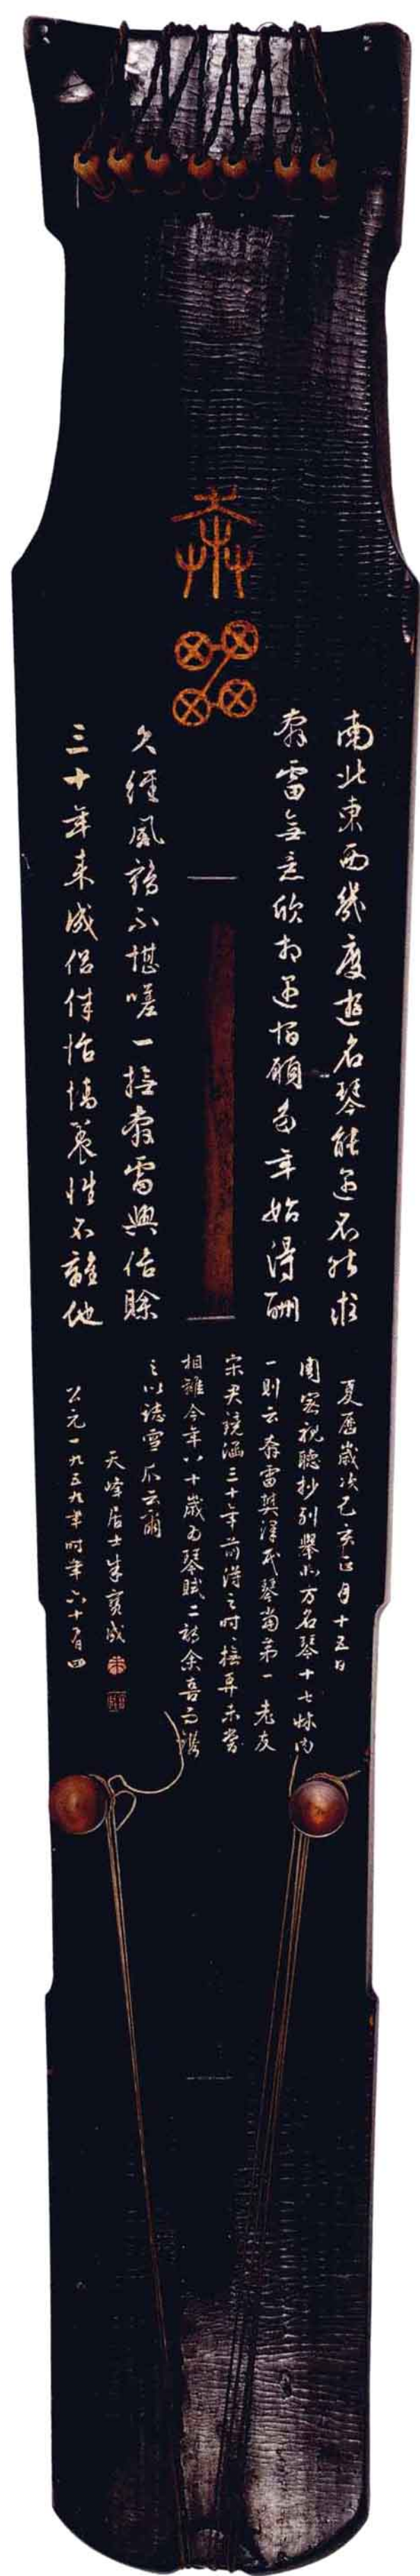 春雷
南北東西幾度遊名琴能遇不能求
春雷無意欣相遇宿願多年始得酬
久經風鶴不堪嗟一撫春雷興倍賒
三十年來成侶伴怡情養性不離他
夏曆歲次己亥正月十五日
周密視聽抄列舉北方名琴十七牀內
一則云春雷樊澤民琴當第一老友
宋君鏡涵三十年前得之時撫弄未嘗
相離今年八十歲為琴賦二詩余喜而鐫
之以誌雪爪云爾
天居士朱寶成
公元一九五九年時年六十有四